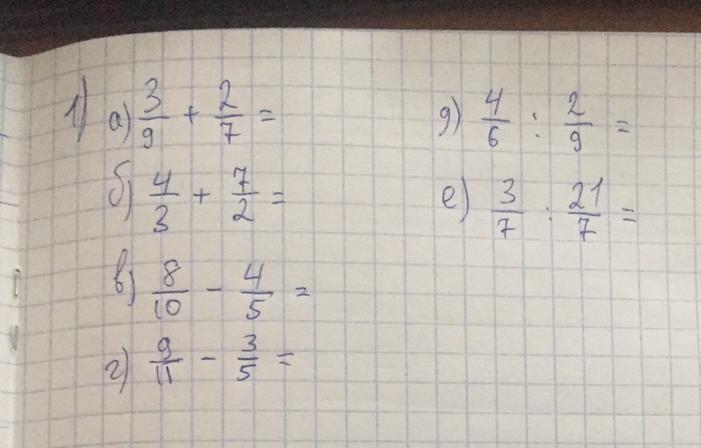 1) а) 3/9 + 2/7 =
б) 4/3 + 7/2 =
в) 8/10 - 4/5 =
г) 9/11 - 3/5 =
д) 4/6 : 2/9 =
е) 3/7 : 21/7 =